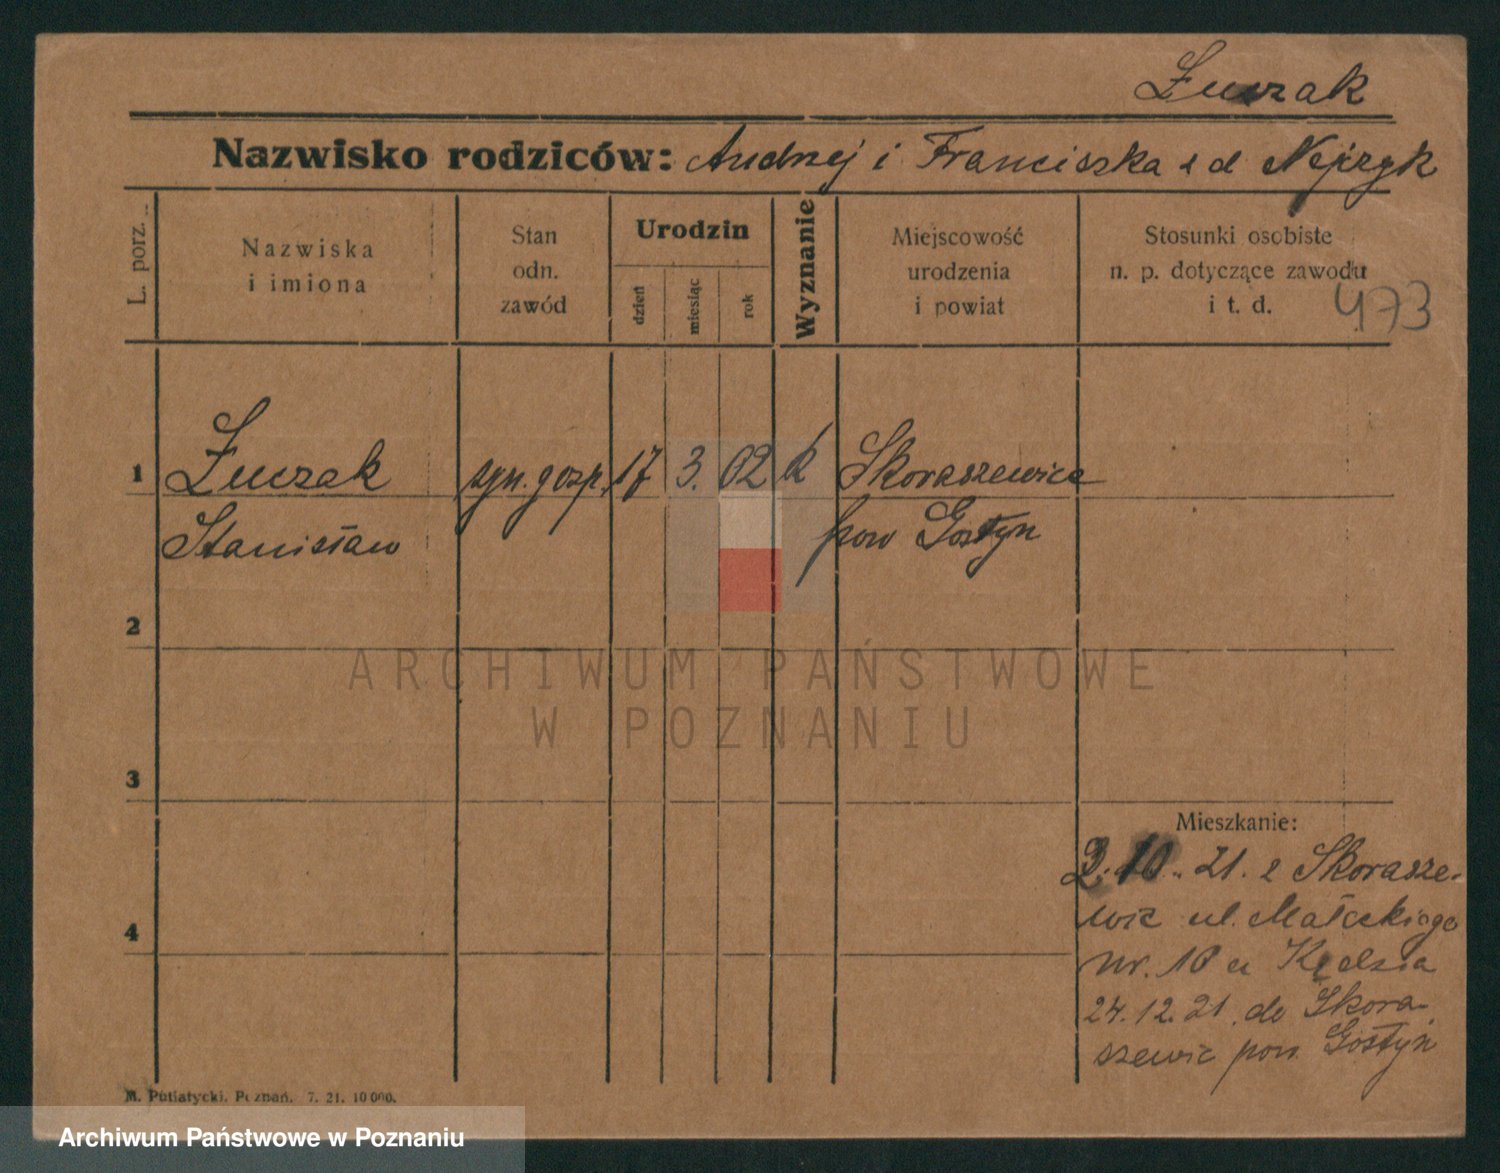 Żuczak
Nazwisko rodziców: Andrzej i Franciszka z d Nejczyk
L. porz.
Nazwiska
i imiona
Stan
odn.
zawód
Urodzin
dzień
miesiąc
rok
Wyznanie
Miejscowość
urodzenia
i powiat
Stosunki osobiste
n. p. dotyczące zawodu
i t. d.
473
1 Żuczak syn. gosp. 17 3. 02 k Skoraszewice
Stanisław pow Gostyn
2
3
4
Mieszkanie:
10. 21. z Skorasze-
wic ul. Małeckiego
nr. 10 u Kędzia
24.12.21. do Skora-
szewic pow. Gostyń
M. Putiatycki. Poznań. 7. 21. 10 000.
ARCHIWUM PAŃSTWOWE
W POZNANIU
Archiwum Państwowe w Poznaniu